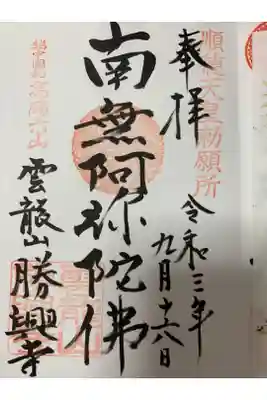 順徳天皇勅願所
奉拝
令和三年
九月十六日
南無阿弥陀佛
雲龍山勝興寺